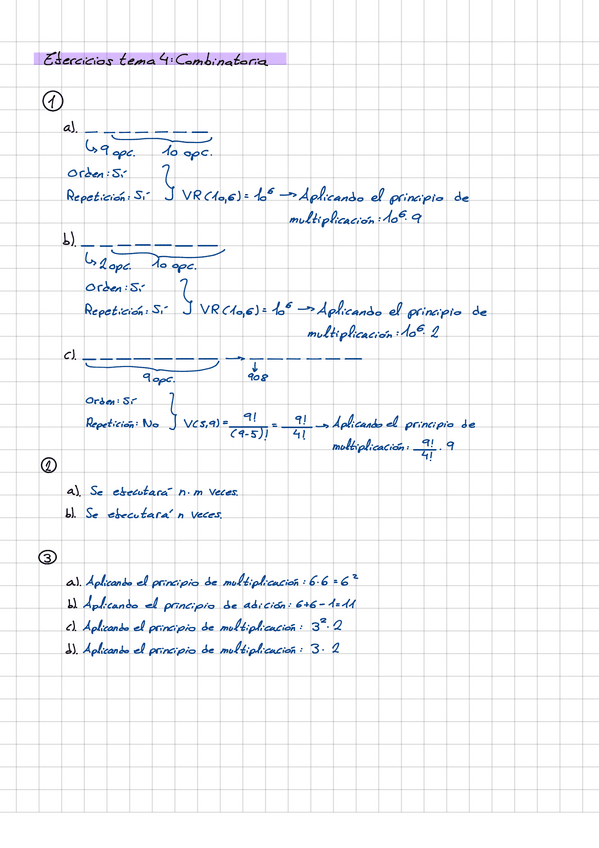 Ejercicios tema 4: Combinatoria
1
a). _ _ _ _ _ _ _
↳ 9 opc. 10 opc.
Orden: Sí
Repetición: Sí } VR(10,6) = 10⁶ → Aplicando el principio de
multiplicación: 10⁶·9
b). _ _ _ _ _ _ _
↳ 2 opc. 10 opc.
Orden: Sí
Repetición: Sí } VR(10,6) = 10⁶ → Aplicando el principio de
multiplicación: 10⁶·2
c). _ _ _ _ _ _ _ → _ _ _ _ _ _
9 opc. ↓
9 o 8
Orden: Sí
Repetición: No } V(5,9) = 9!/(9-5)! = 9!/4! → Aplicando el principio de
multiplicación: 9!/4! · 9
2
a). Se ejecutará n·m veces.
b). Se ejecutará n veces.
3
a). Aplicando el principio de multiplicación: 6·6 = 6²
b) Aplicando el principio de adición: 6+6-1=11
c). Aplicando el principio de multiplicación: 3²·2
d). Aplicando el principio de multiplicación: 3·2